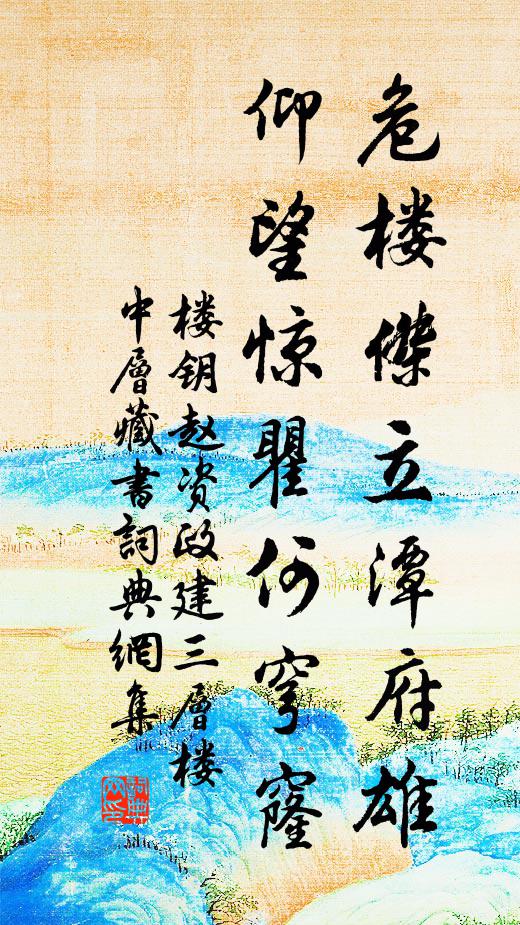 危楼傑立潭府雄
仰望惊瞿何穹窿
楼钥赵资政建三層楼
中層藏書詞典網集